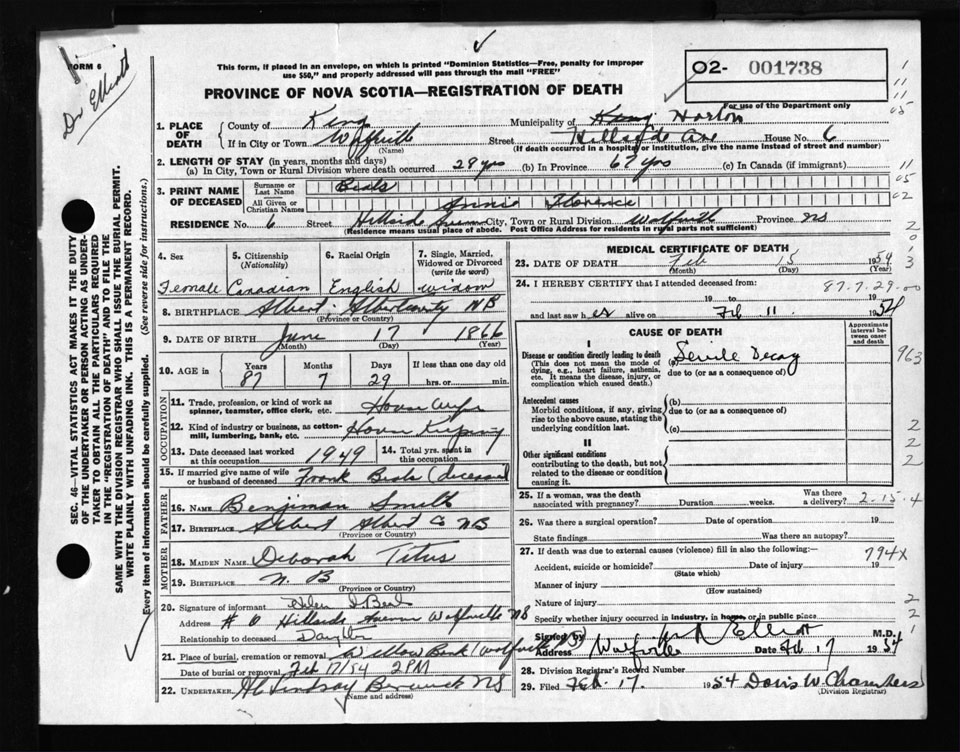 FORM 6
Dr Elliott
This form, if placed in an envelope, on which is printed "Dominion Statistics—Free, penalty for improper
use $50," and properly addressed will pass through the mail "FREE"
PROVINCE OF NOVA SCOTIA—REGISTRATION OF DEATH
02- 001738
For use of the Department only
1. PLACE OF DEATH
County of Kings Municipality of Horton
If in City or Town Wolfville Street Hillside Ave House No. 6
(Name) (If death occurred in a hospital or institution, give the name instead of street and number)
2. LENGTH OF STAY (in years, months and days)
(a) In City, Town or Rural Division where death occurred 28 yrs (b) In Province 67 yrs (c) In Canada (if immigrant)
3. PRINT NAME OF DECEASED
Surname or Last Name Beals
All Given or Christian Names Annie Florence
RESIDENCE No. 6 Street Hillside Avenue City, Town or Rural Division Wolfville Province NS
(Residence means usual place of abode. Post Office Address for residents in rural parts not sufficient)
4. Sex Female
5. Citizenship (Nationality) Canadian
6. Racial Origin English
7. Single, Married, Widowed or Divorced (write the word) widow
8. BIRTHPLACE Albert, Albert County NB
(Province or Country)
9. DATE OF BIRTH June 17 1866
(Month) (Day) (Year)
10. AGE in Years 87 Months 7 Days 29 If less than one day hrs. or min.
OCCUPATION
11. Trade, profession, or kind of work as spinner, teamster, office clerk, etc. House Wife
12. Kind of industry or business, as cotton-mill, lumbering, bank, etc. House Keeping
13. Date deceased last worked at this occupation 1949 14. Total yrs. spent in this occupation
15. If married give name of wife or husband of deceased Frank Beals (deceased)
FATHER
16. NAME Benjiman Smith
17. BIRTHPLACE Albert Albert Co NB
(Province or Country)
MOTHER
18. MAIDEN NAME Deborah Titus
19. BIRTHPLACE N. B
(Province or Country)
20. Signature of informant Helen I Beals
Address # 6 Hillside Avenue Wolfville NS
Relationship to deceased Daughter
21. Place of burial, cremation or removal Willow Bank Wolfville
Date of burial or removal Feb 17/54 2 PM
22. UNDERTAKER Lindsay Berwick NS
(Name and address)
MEDICAL CERTIFICATE OF DEATH
23. DATE OF DEATH Feb 15 1954
(Month) (Day) (Year)
24. I HEREBY CERTIFY that I attended deceased from: 87.7.29.00
19 to 19
and last saw her alive on Feb 11. 1954
CAUSE OF DEATH
Approximate interval between onset and death
I
Disease or condition directly leading to death
(This does not mean the mode of dying, e.g., heart failure, asthenia, etc. It means the disease, injury, or complication which caused death.)
(a) Senile Decay
due to (or as a consequence of)
Antecedent causes
Morbid conditions, if any, giving rise to the above cause, stating the underlying condition last.
(b)
due to (or as a consequence of)
(c)
II
Other significant conditions
contributing to the death, but not related to the disease or condition causing it.
25. If a woman, was the death associated with pregnancy? Duration weeks. Was there a delivery? 2-15-4
26. Was there a surgical operation? Date of operation 19
State findings Was there an autopsy?
27. If death was due to external causes (violence) fill in also the following:— 794X
Accident, suicide or homicide? Date of injury 19
(State which)
Manner of injury
(How sustained)
Nature of injury
Specify whether injury occurred in industry, in home, or in public place
Signed by Elliott M.D.
Address Wolfville Date Feb 17 1954
28. Division Registrar's Record Number
29. Filed Feb. 17. 1954 Doris W. Chambers
(Division Registrar)
SEC. 46—VITAL STATISTICS ACT MAKES IT THE DUTY
OF THE UNDERTAKER OR PERSON ACTING AS UNDER-
TAKER TO OBTAIN ALL THE PARTICULARS REQUIRED
IN THE "REGISTRATION OF DEATH" AND TO FILE THE
SAME WITH THE DIVISION REGISTRAR WHO SHALL ISSUE THE BURIAL PERMIT.
WRITE PLAINLY WITH UNFADING INK. THIS IS A PERMANENT RECORD.
Every item of information should be carefully supplied. (See reverse side for instructions.)
1
11
11
05
11
05
02
2
0
1
3
963
2
2
2
2
1